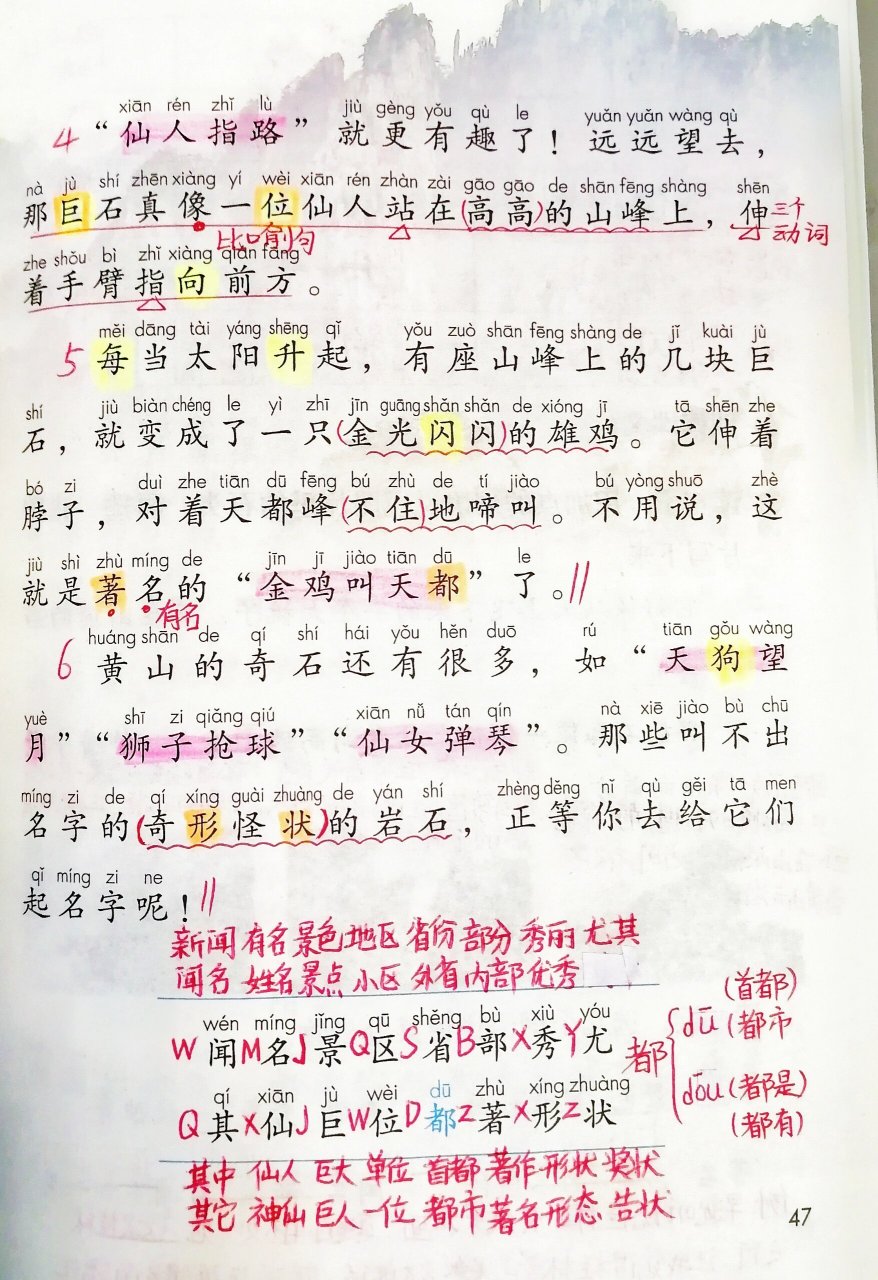 xiān rén zhǐ lù jiù gèng yǒu qù le yuǎn yuǎn wàng qù
4 “仙人指路”就更有趣了！远远望去，
nà jù shí zhēn xiàng yí wèi xiān rén zhàn zài gāo gāo de shān fēng shàng shēn
那巨石真像一位仙人站在(高高)的山峰上，伸 三个动词
比喻句
zhe shǒu bì zhǐ xiàng qián fāng
着手臂指向前方。
měi dāng tài yáng shēng qǐ yǒu zuò shān fēng shàng de jǐ kuài jù
5 每当太阳升起，有座山峰上的几块巨
shí jiù biàn chéng le yì zhī jīn guāng shǎn shǎn de xióng jī tā shēn zhe
石，就变成了一只(金光闪闪)的雄鸡。它伸着
bó zi duì zhe tiān dū fēng bú zhù de tí jiào bú yòng shuō zhè
脖子，对着天都峰(不住)地啼叫。不用说，这
jiù shì zhù míng de jīn jī jiào tiān dū le
就是著名的“金鸡叫天都”了。//
有名
huáng shān de qí shí hái yǒu hěn duō rú tiān gǒu wàng
6 黄山的奇石还有很多，如“天狗望
yuè shī zi qiǎng qiú xiān nǚ tán qín nà xiē jiào bù chū
月”“狮子抢球”“仙女弹琴”。那些叫不出
míng zi de qí xíng guài zhuàng de yán shí zhèng děng nǐ qù gěi tā men
名字的(奇形怪状)的岩石，正等你去给它们
qǐ míng zi ne
起名字呢！//
新闻 有名 景色 地区 省份 部分 秀丽 尤其
闻名 姓名 景点 小区 外省 内部 优秀
wén míng jǐng qū shěng bù xiù yóu
W闻M名J景Q区S省B部X秀Y尤
qí xiān jù wèi dū zhù xíng zhuàng
Q其X仙J巨W位D都Z著X形Z状
都
dū (首都)
(都市
dōu (都是)
(都有)
其中 仙人 巨大 单位 首都 著作 形状 奖状
其它 神仙 巨人 一位 都市 著名 形态 告状
47